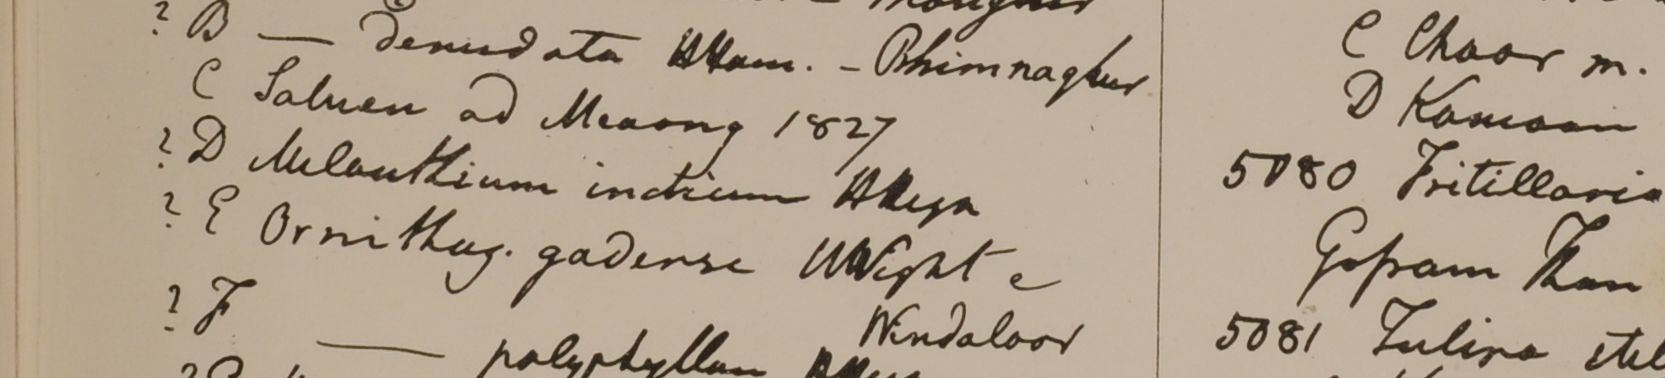 ? B — denudata HHam. - Bhimnaghur
C Saluen ad Meaong 1827
? D Melanthium indicum HHeyn
? E Ornithog. gadense HWight e
Vendaloor
? F — polyphyllum
C Chaor m.
D Kamaon
5080 Fritillaria
Gosain Than
5081 Tulipa stel